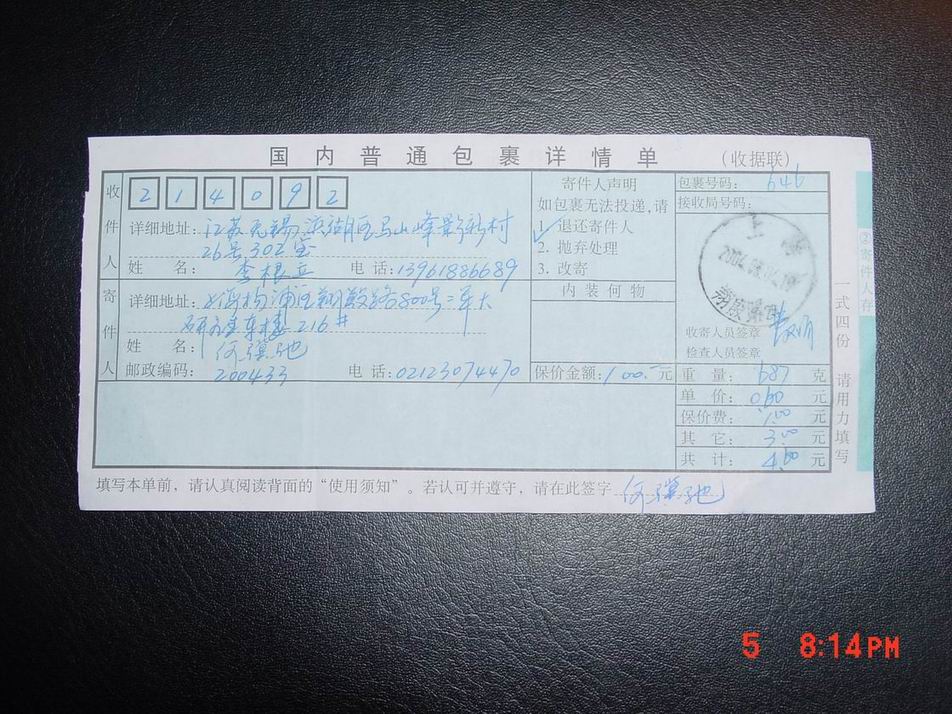 国内普通包裹详情单 (收据联)
收件人
214092
详细地址：江苏无锡滨湖区马山峰影新村
26号302室
姓 名：李根 电话：13961886689
寄件人
详细地址：上海杨浦区翔殷路800号二军大
研究生东楼216#
姓 名：何谟驰
邮政编码：200433 电话：02123074470
寄件人声明
如包裹无法投递，请
1. 退还寄件人
2. 抛弃处理
3. 改寄
内装何物
保价金额：100.- 元
包裹号码：646
接收局号码：
上海
2004.
收寄人员签章
检查人员签章
重 量：687 克
单 价：0.60 元
保价费：1.00 元
其 它：3.00 元
共 计：4.60 元
一式四份 请用力填写
②寄件人存
填写本单前，请认真阅读背面的“使用须知”。若认可并遵守，请在此签字 何谟驰
5 8:14PM